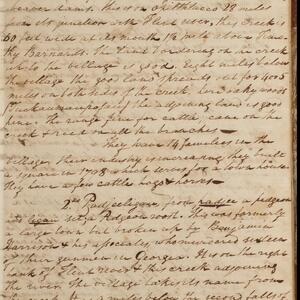 beaver dams. This on Ouhitlucco 20 miles
its junction with Flint river, this creek is
60 feet wide at its mouth 1½ miles above Timo-
thy Barnards. The land bordering on the creek
up to the village is good. Eight miles below
the village the good land spreads out for 4 or 5
miles on both sides of the creek, with oaky woods
the adjoining land is good
pine. The range fine for cattle; cane on the
creek & reed on all the branches
They have 14 families in the
village, their industry is increasing, they built
a square in 1798 which serves for a town house.
They have a few cattle hogs & horses
2nd Padjeeligau from padjee a pidgeon
and ligau set, a Pidgeon roost. This was formerly
a large town but broken up by Benjamin
Harrison & his associates, who murdered sixteen
of their gunmen in Georgia. It is on the right
bank of Flint river & this creek adjoining
the river. The village takes its name from
miles below